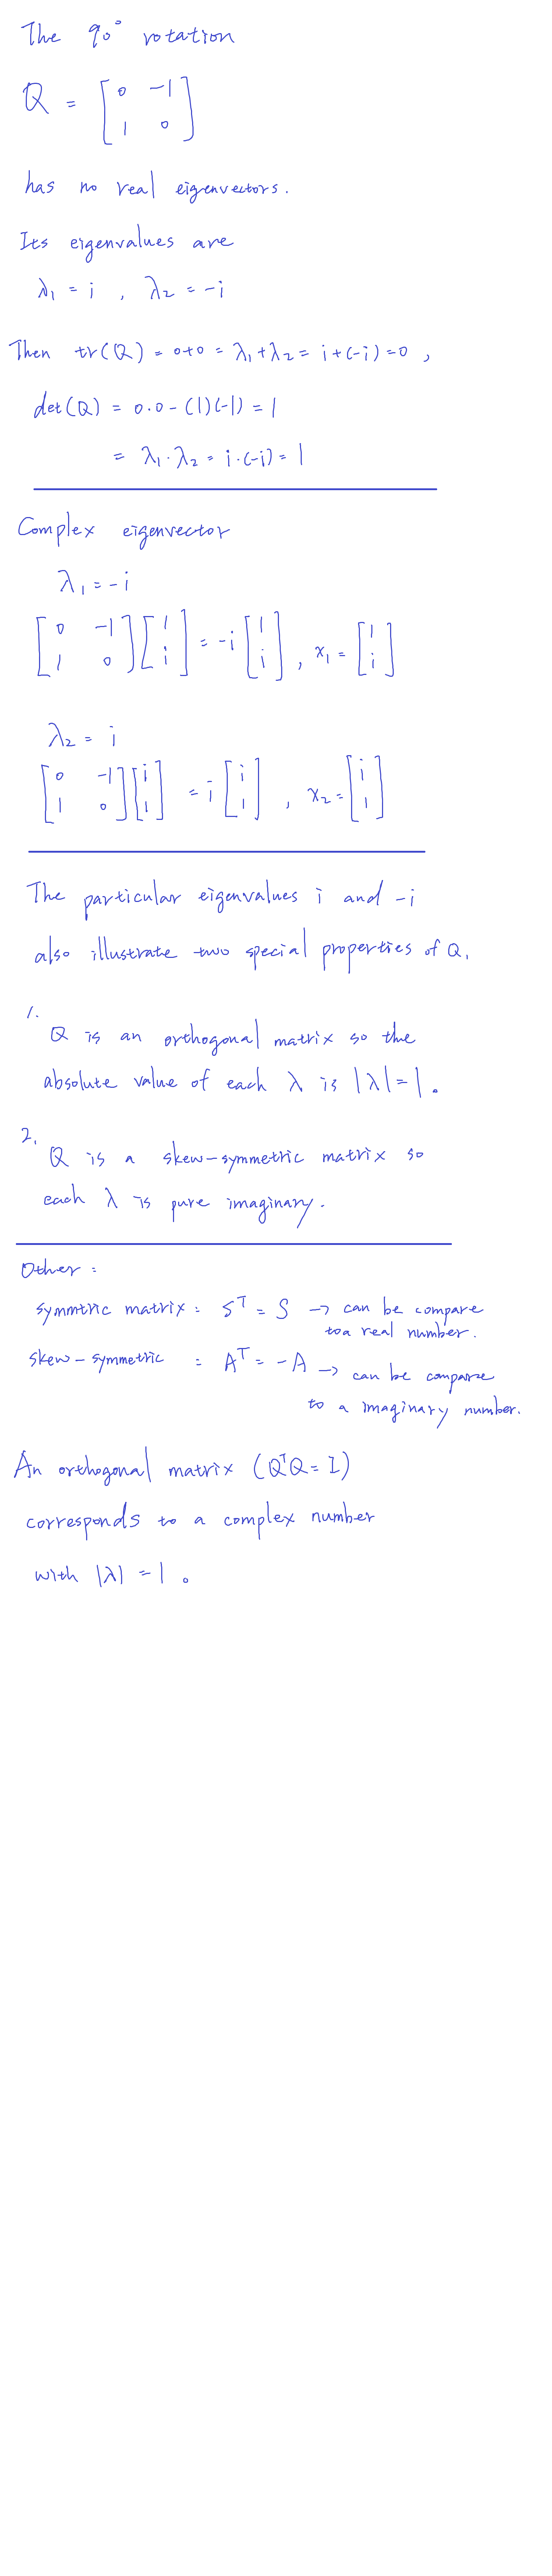 The 90° rotation
Q = [0 -1
1 0]
has no real eigenvectors.
Its eigenvalues are
λ1 = i , λ2 = -i
Then tr(Q) = 0+0 = λ1+λ2 = i+(-i) = 0 ,
det(Q) = 0·0 - (1)(-1) = 1
= λ1·λ2 = i·(-i) = 1
Complex eigenvector
λ1 = -i
[0 -1
1 0] [1
i] = -i [1
i] , x1 = [1
i]
λ2 = i
[0 -1
1 0] [i
1] = i [i
1] , x2 = [i
1]
The particular eigenvalues i and -i
also illustrate two special properties of Q.
1.
Q is an orthogonal matrix so the
absolute value of each λ is |λ| = 1 。
2.
Q is a skew-symmetric matrix so
each λ is pure imaginary.
Other :
symmtric matrix : S^T = S → can be compare
to a real number.
skew-symmetric : A^T = -A → can be compare
to a imaginary number.
An orthogonal matrix (Q^TQ = I)
corresponds to a complex number
with |λ| = 1 。